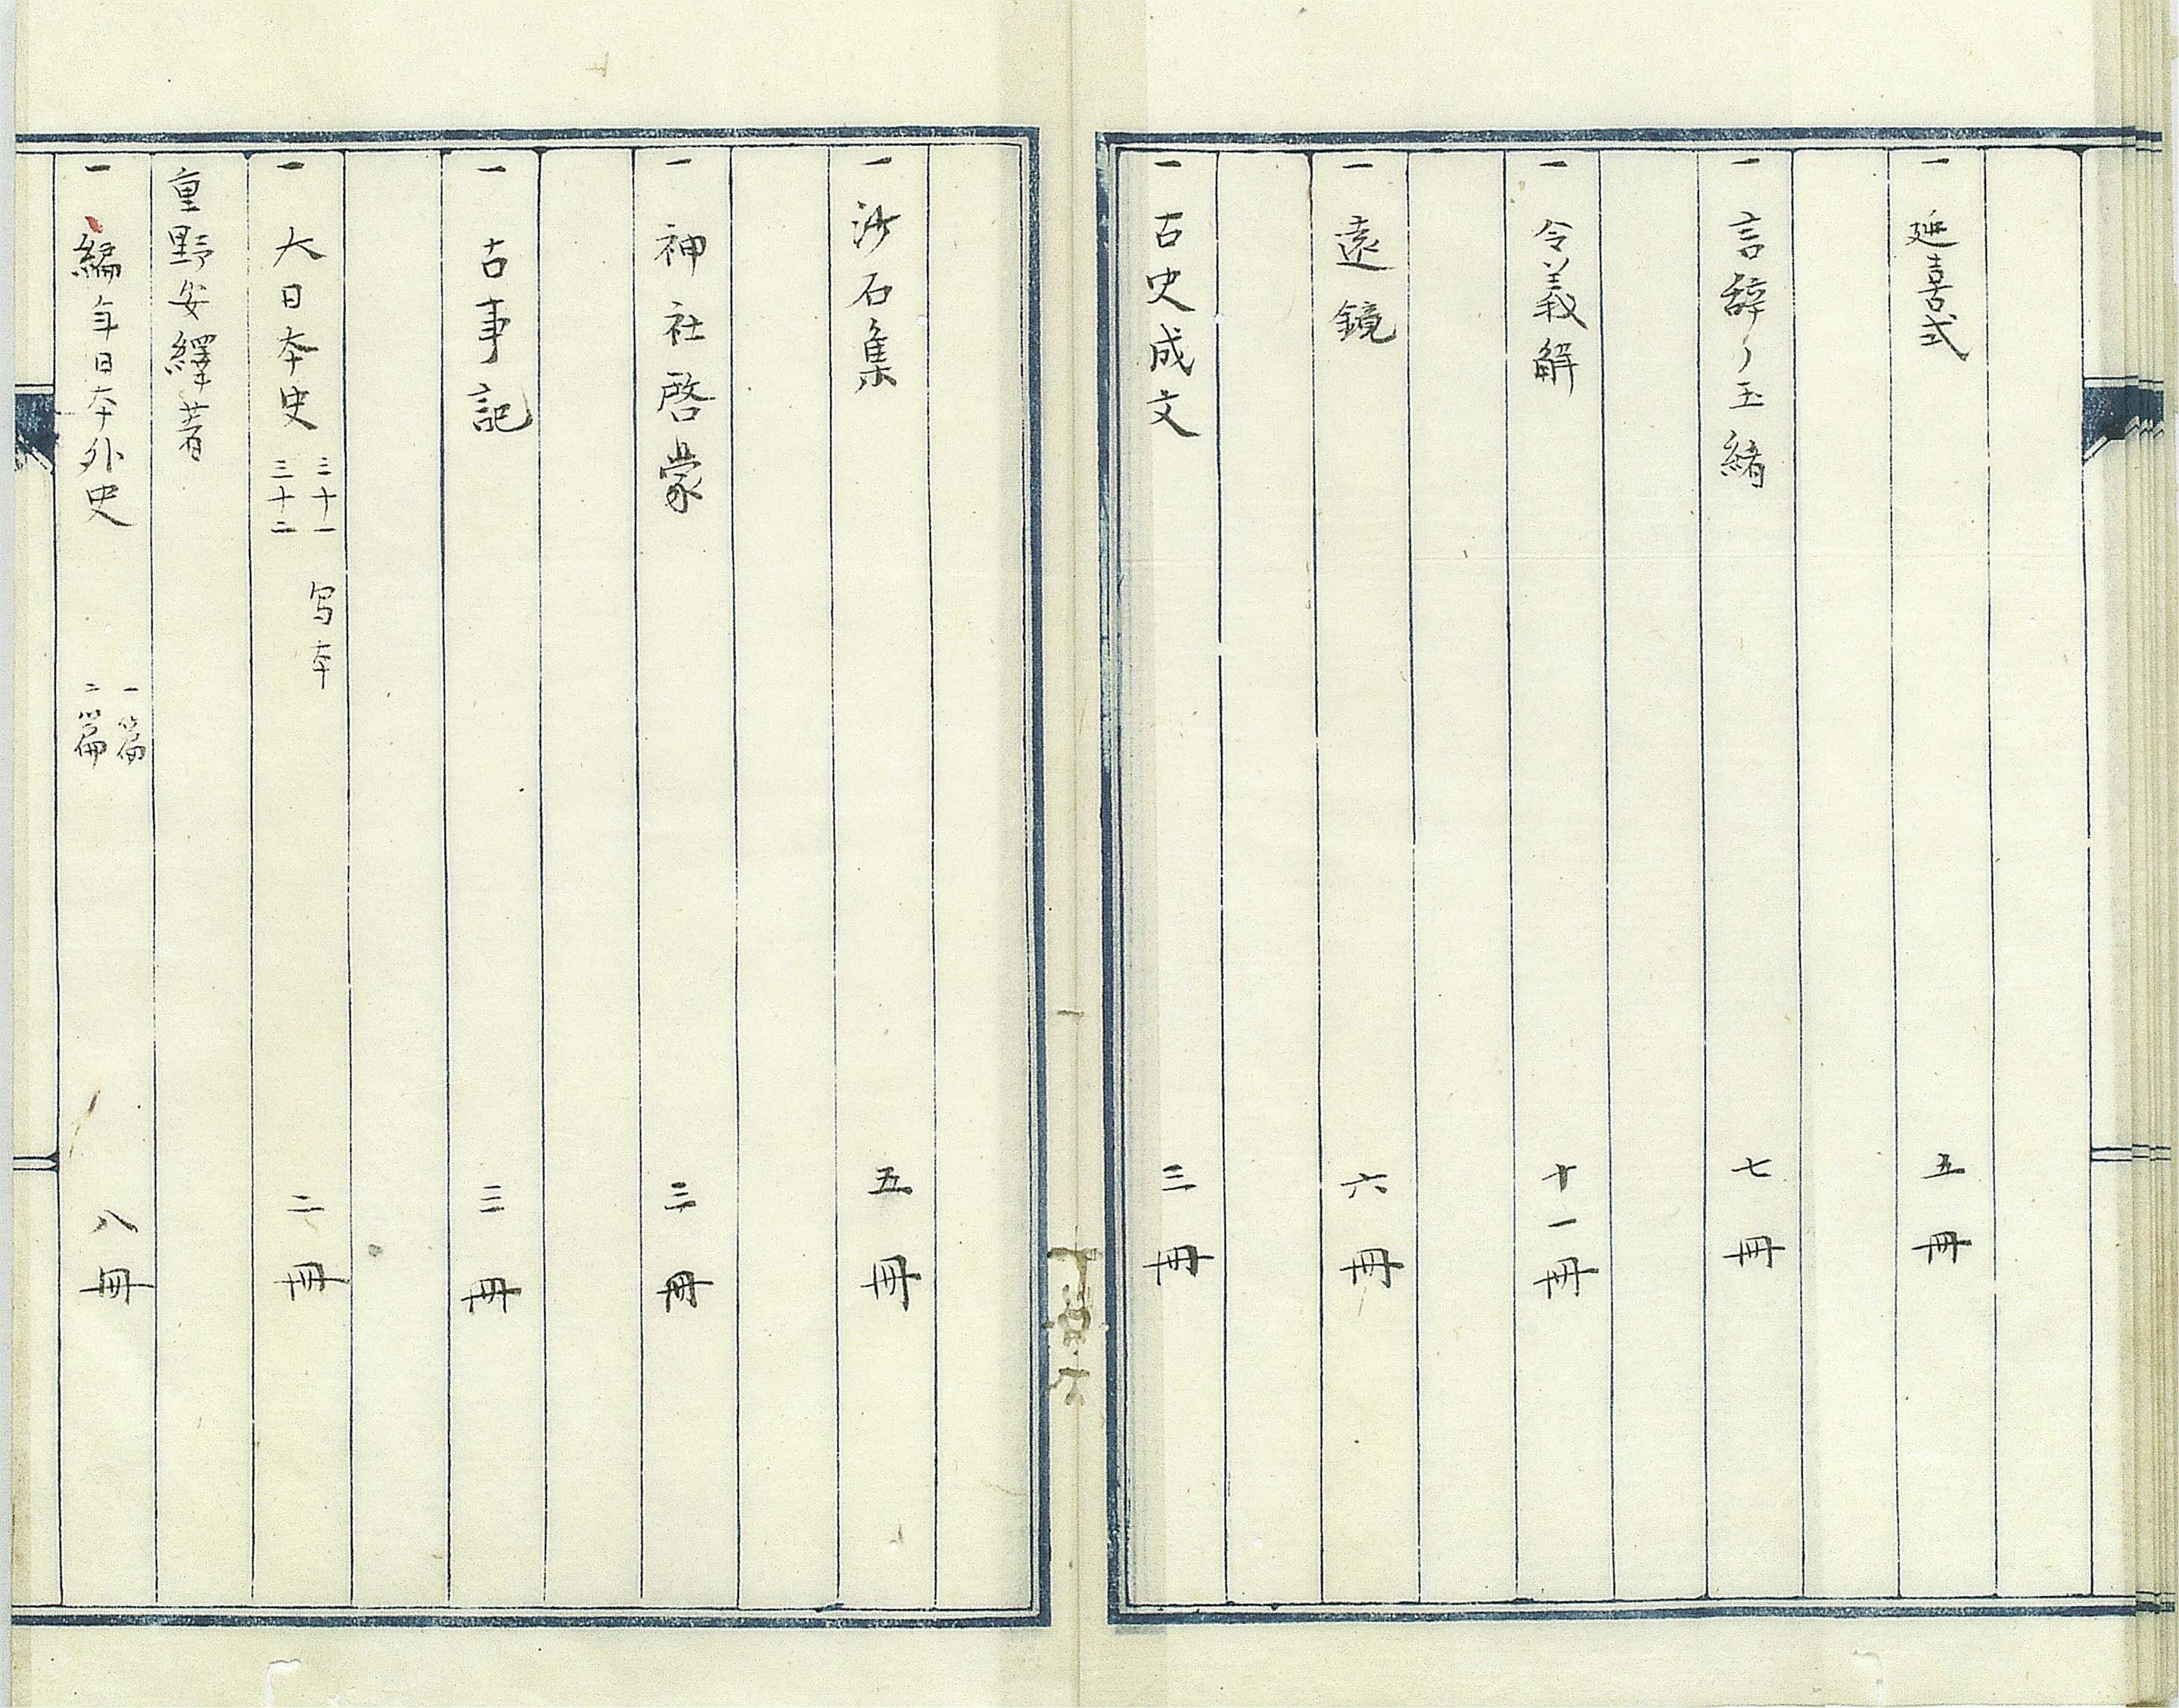 一 延喜式 五冊
一 言辞ノ玉緒 七冊
一 令義解 十一冊
一 遠鏡 六冊
一 古史成文 三冊
一 沙石集 五冊
一 神社啓蒙 三冊
一 古事記 三冊
一 大日本史 三十一 三十二 写本 二冊
重野安繹著
一 編年日本外史 一篇 二篇 八冊